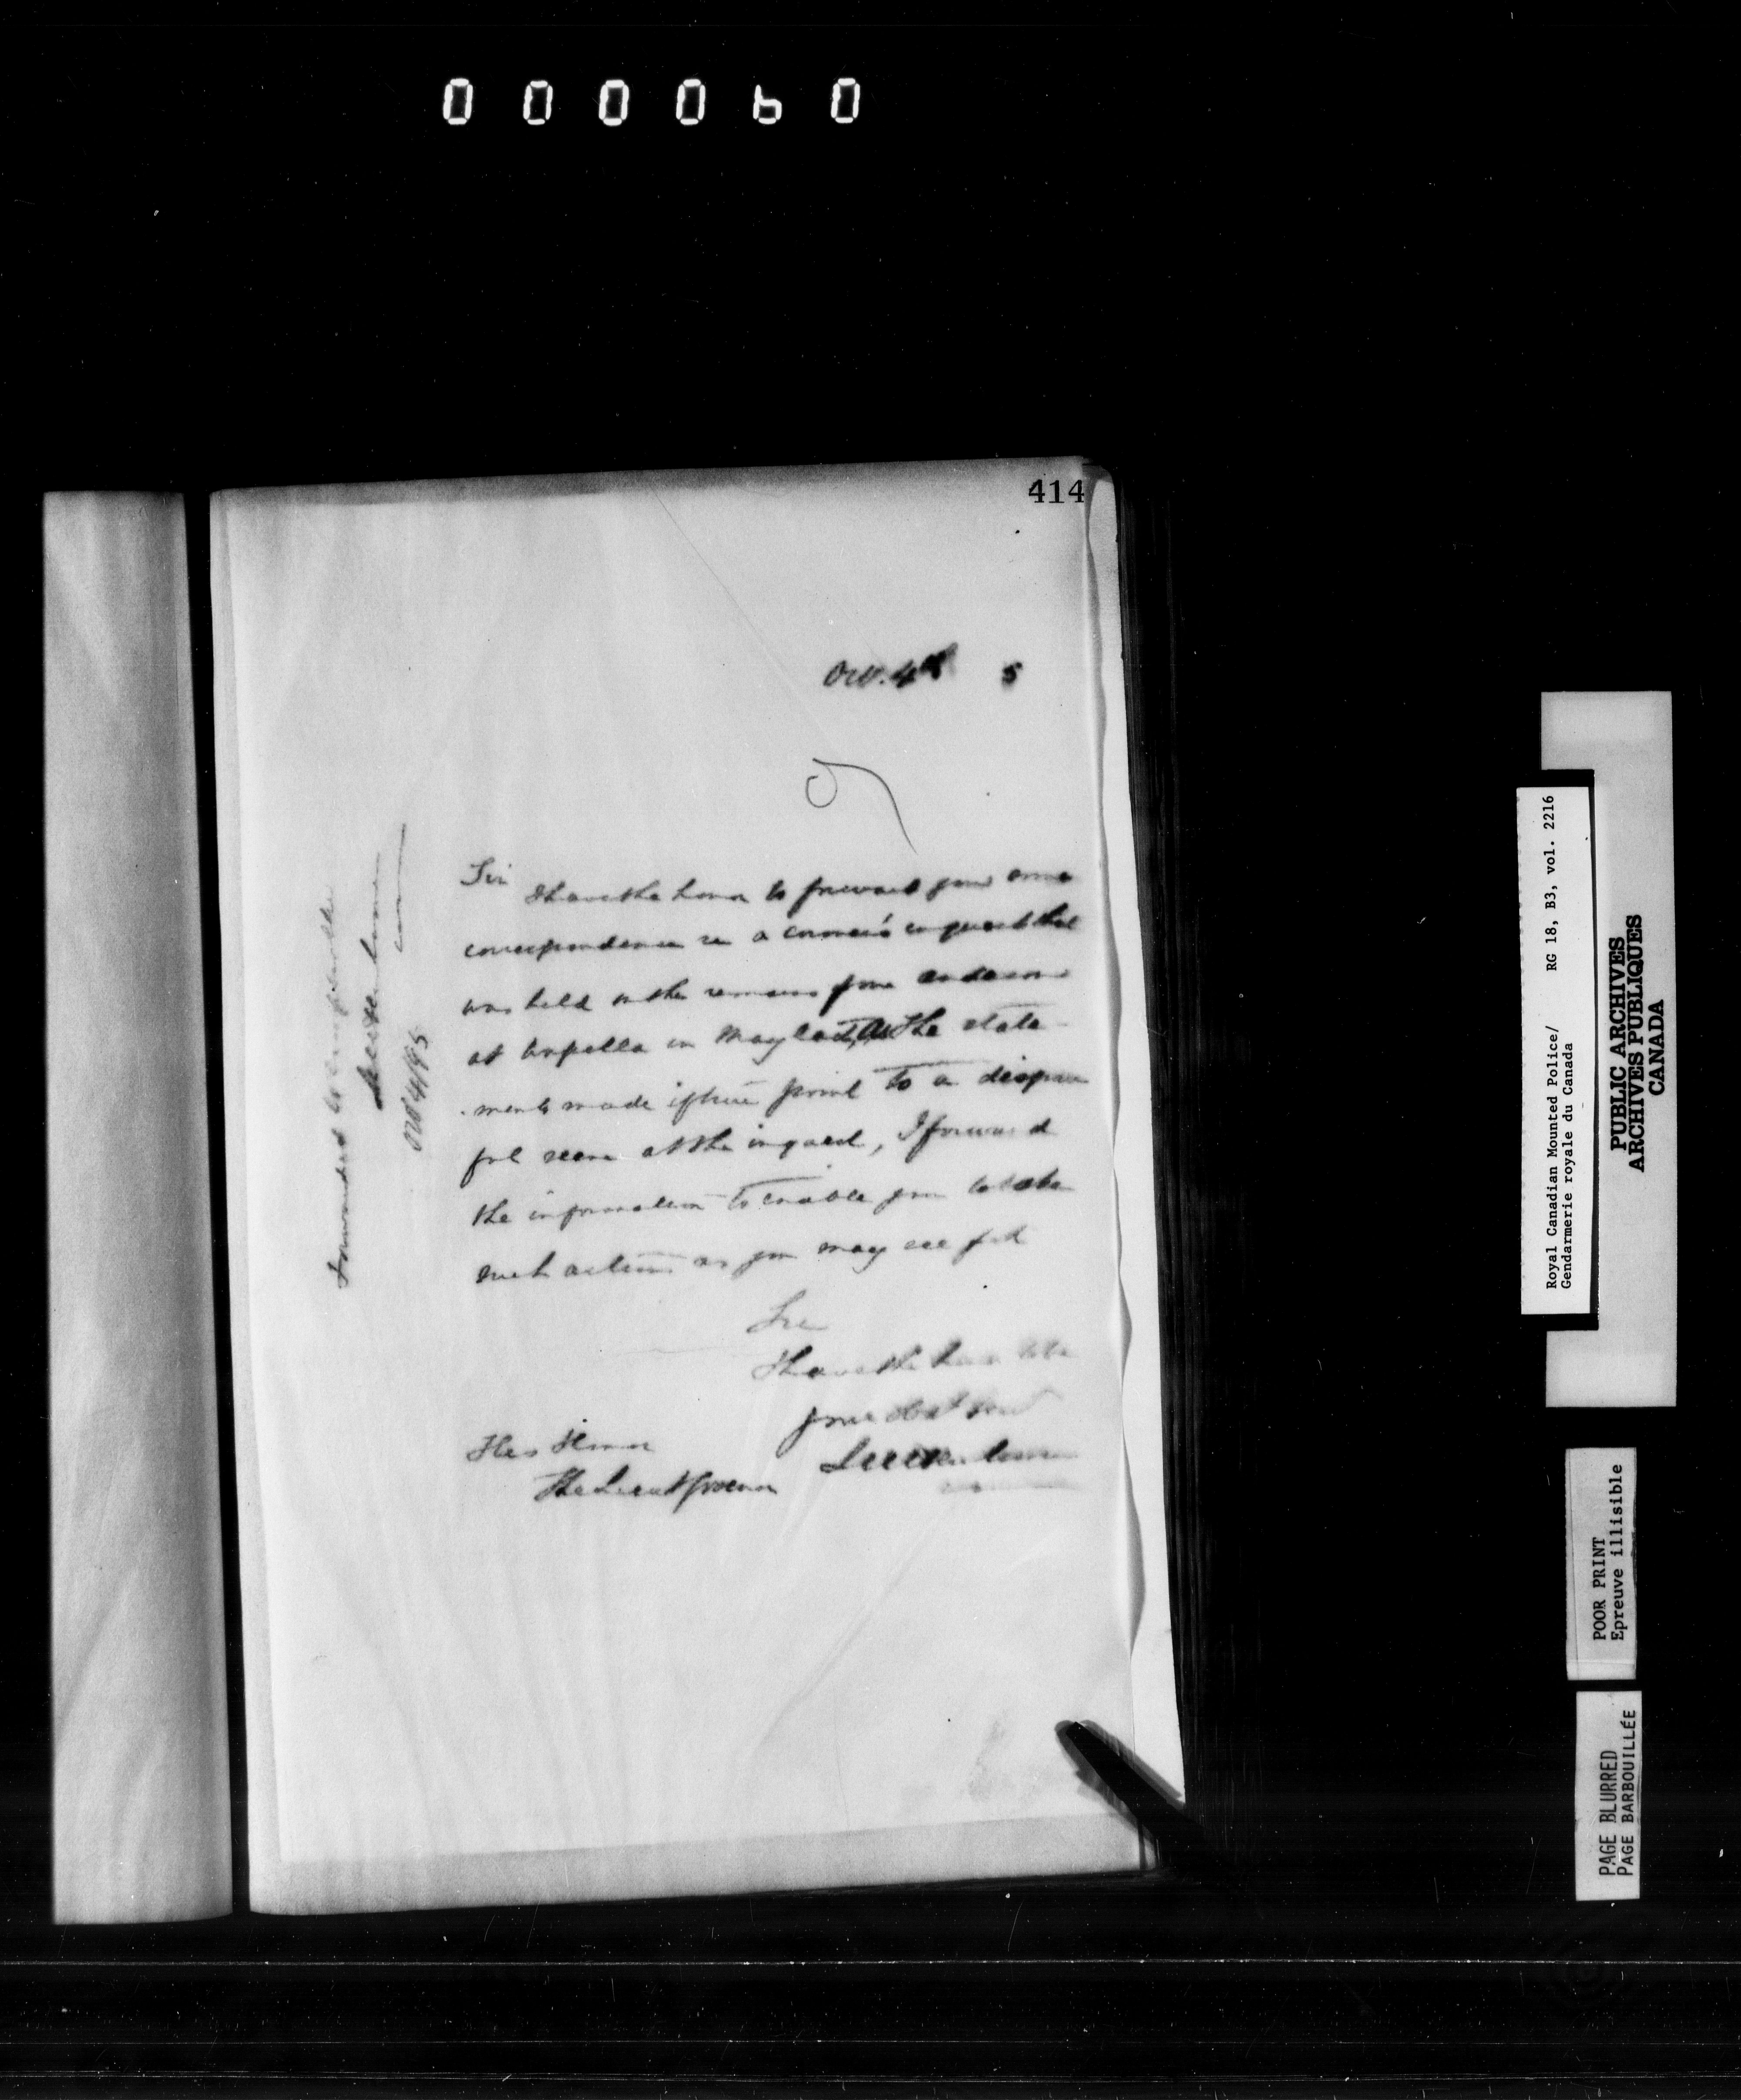 000060
414
Oct. 4th 5
Sir
I have the honor to forward you some
correspondence re a coroner's inquest that
was held on the remains of one Anderson
at in May last, As the state-
ments made if true point to a disgrace
ful scene at the inquest, I forward
the information to enable you to take
such action as you may see fit
Sir
I have the honor to be
your obdt servt
His Honor
The Lieut Governor
Forwarded
Oct 4/95
Royal Canadian Mounted Police/ RG 18, B3, vol. 2216
Gendarmerie royale du Canada
PUBLIC ARCHIVES
ARCHIVES PUBLIQUES
CANADA
POOR PRINT
Epreuve illisible
PAGE BLURRED
PAGE BARBOUILLÉE